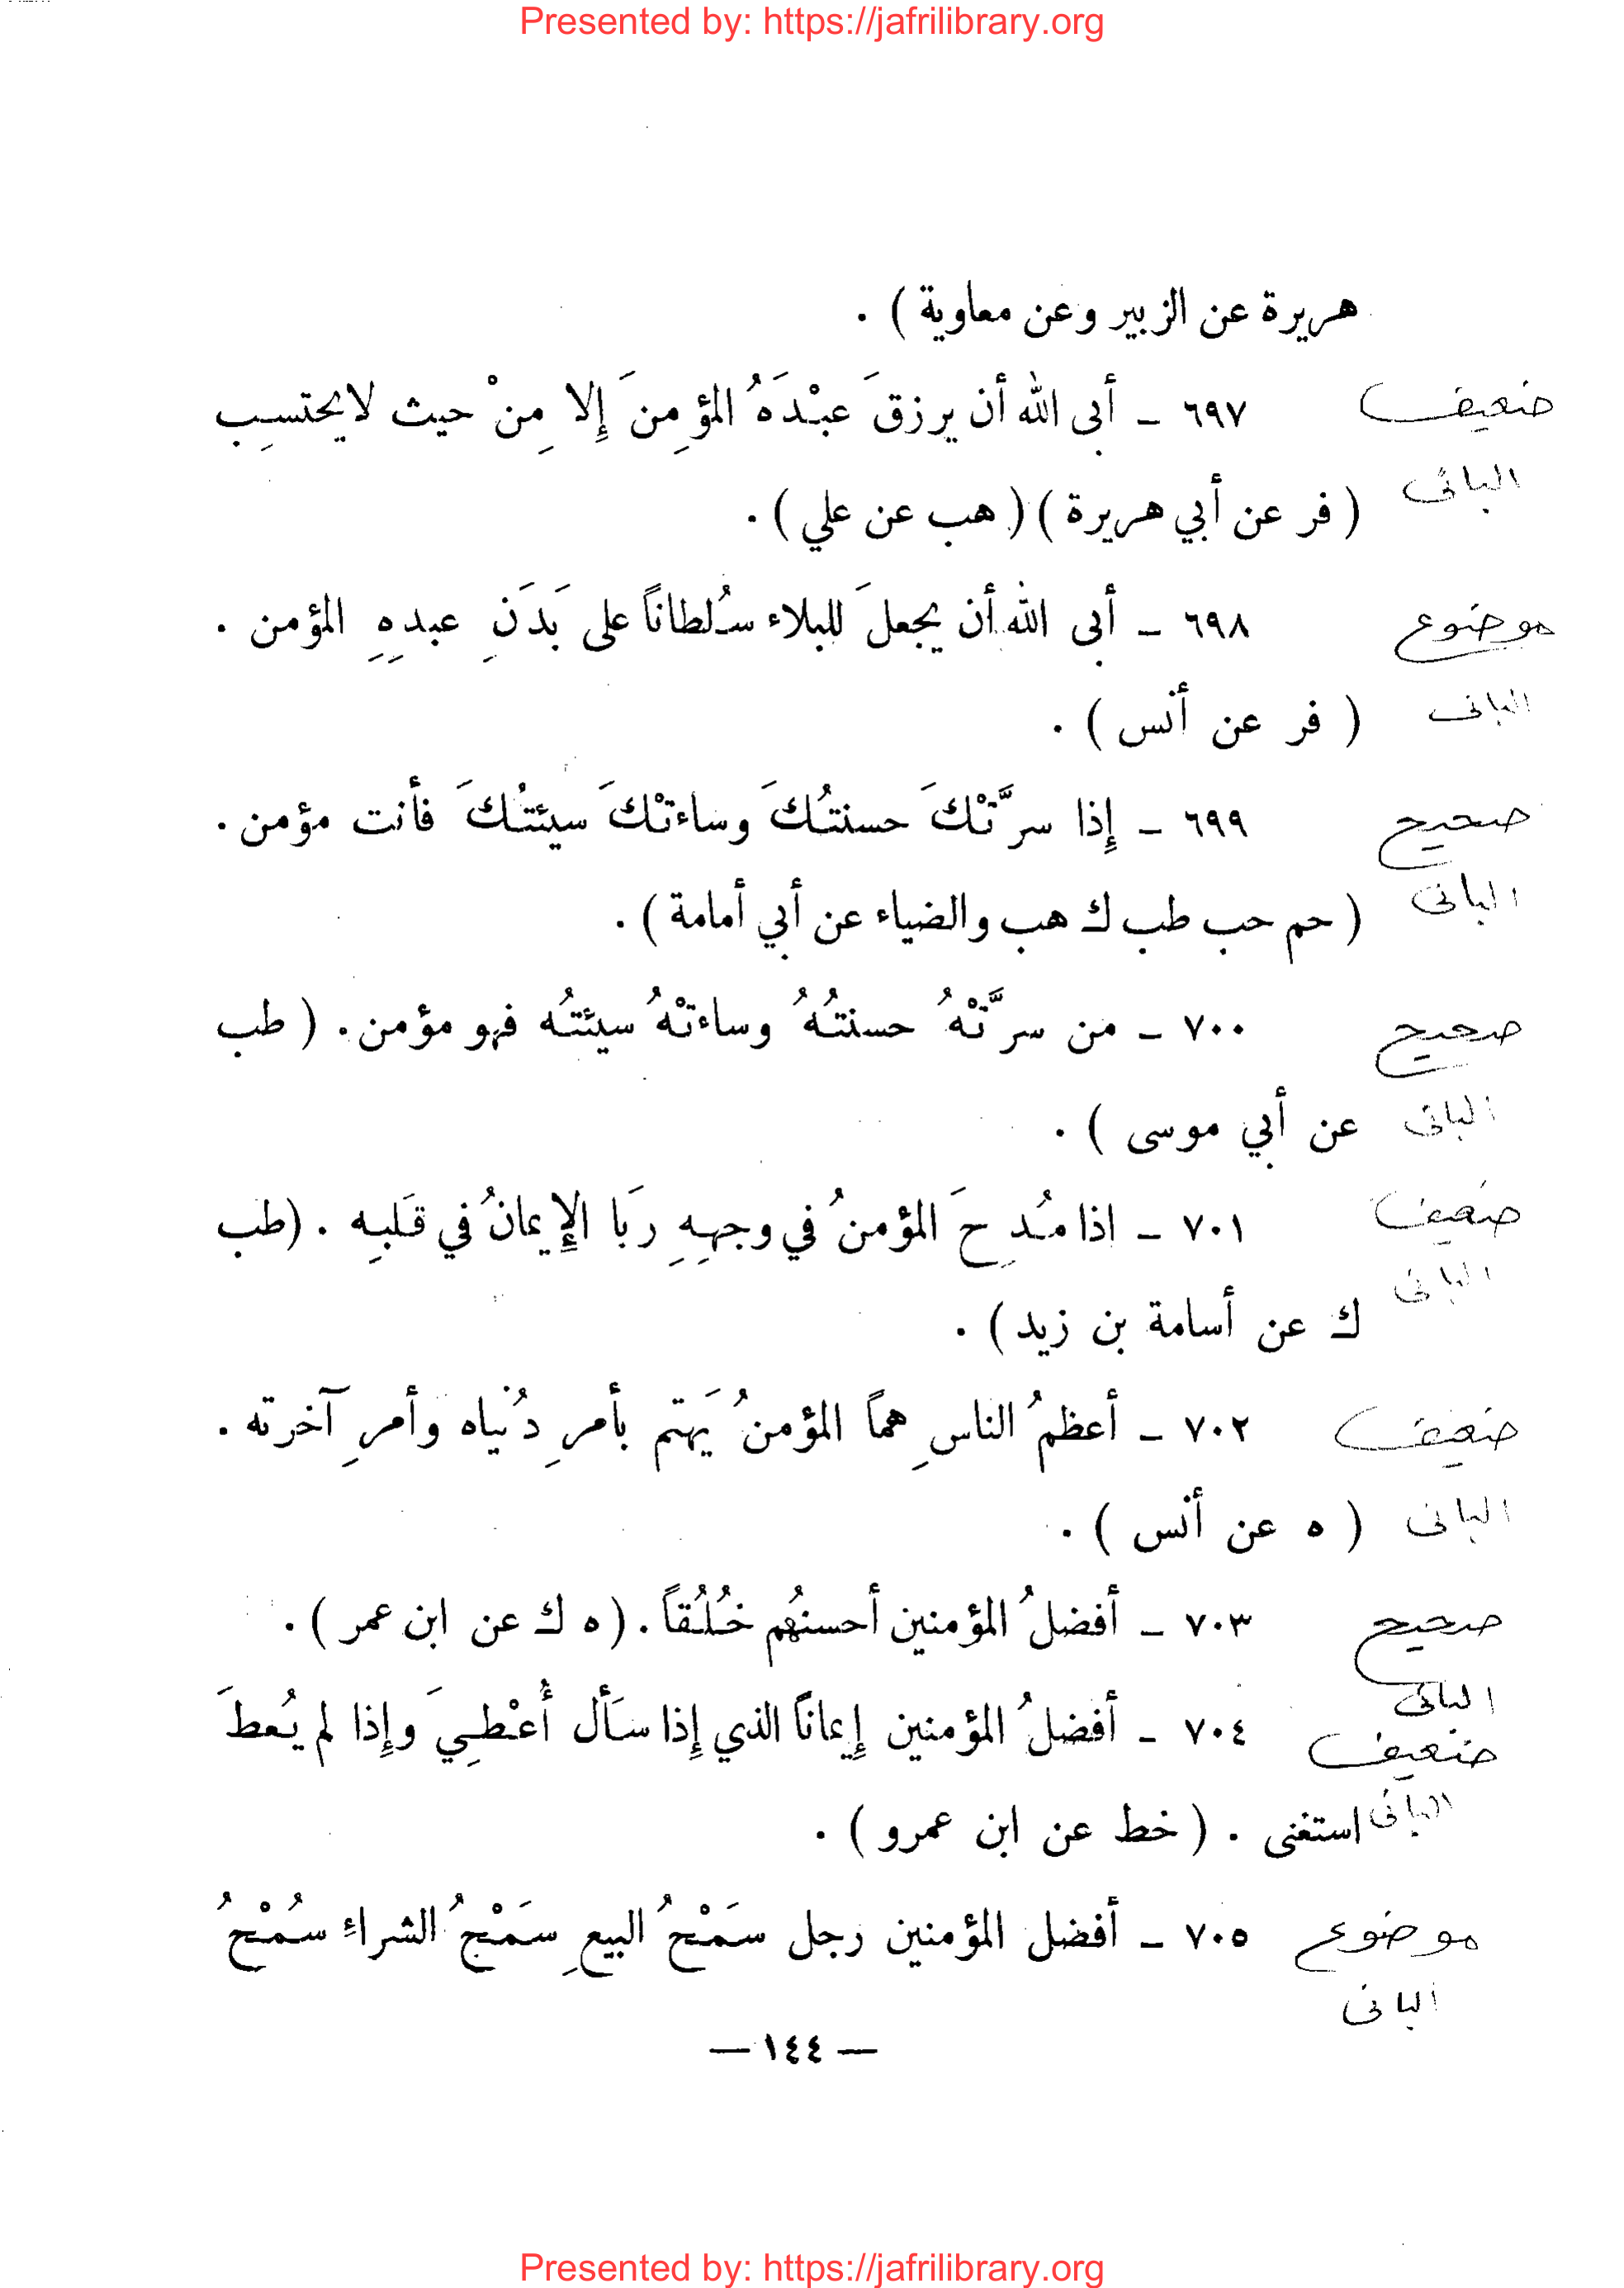 Presented by: https://jafrilibrary.org
هريرة عن الزبير وعن معاوية ) .
ضعيف ٦٩٧ ـ أبى الله أن يرزقَ عبْدَهُ المؤمِنَ إِلا مِنْ حيث لا يحتسِب
البانى ( فر عن أبي هريرة ) ( هب عن علي ) .
موضوع ٦٩٨ ـ أبى الله أن يجعلَ للبلاء سُلطاناً على بَدَنِ عبدِهِ المؤمن .
البانى ( فر عن أنس ) .
صحيح ٦٩٩ ـ إِذا سرَّتْكَ حسنتُكَ وساءتْكَ سيئتُكَ فأنت مؤمن .
البانى ( حم حب طب ك هب والضياء عن أبي أمامة ) .
صحيح ٧٠٠ ـ من سرَّتْهُ حسنتُهُ وساءتْهُ سيئتُه فهو مؤمن . ( طب
البانى عن أبي موسى ) .
ضعيف ٧٠١ ـ اذا مُدِحَ المؤمنُ في وجهِهِ رَبَا الإِيمانُ في قَلبِه . (طب
البانى ك عن أسامة بن زيد ) .
ضعيف ٧٠٢ ـ أعظمُ الناسِ هماً المؤمنُ يَهتم بأمرِ دُنياه وأمرِ آخرته .
البانى ( ه عن أنس ) .
صحيح ٧٠٣ ـ أفضلُ المؤمنين أحسنُهم خُلُقاً . ( ه ك عن ابن عمر ) .
البانى
ضعيف ٧٠٤ ـ أفضلُ المؤمنين إِيماناً الذي إِذا سَأل أُعْطِيَ وإِذا لم يُعطَ
البانى استغنى . ( خط عن ابن عمرو ) .
موضوع ٧٠٥ ـ أفضل المؤمنين رجل سَمْحُ البيعِ سَمْحُ الشراءِ سُمْحُ
البانى
— ١٤٤ —
Presented by: https://jafrilibrary.org